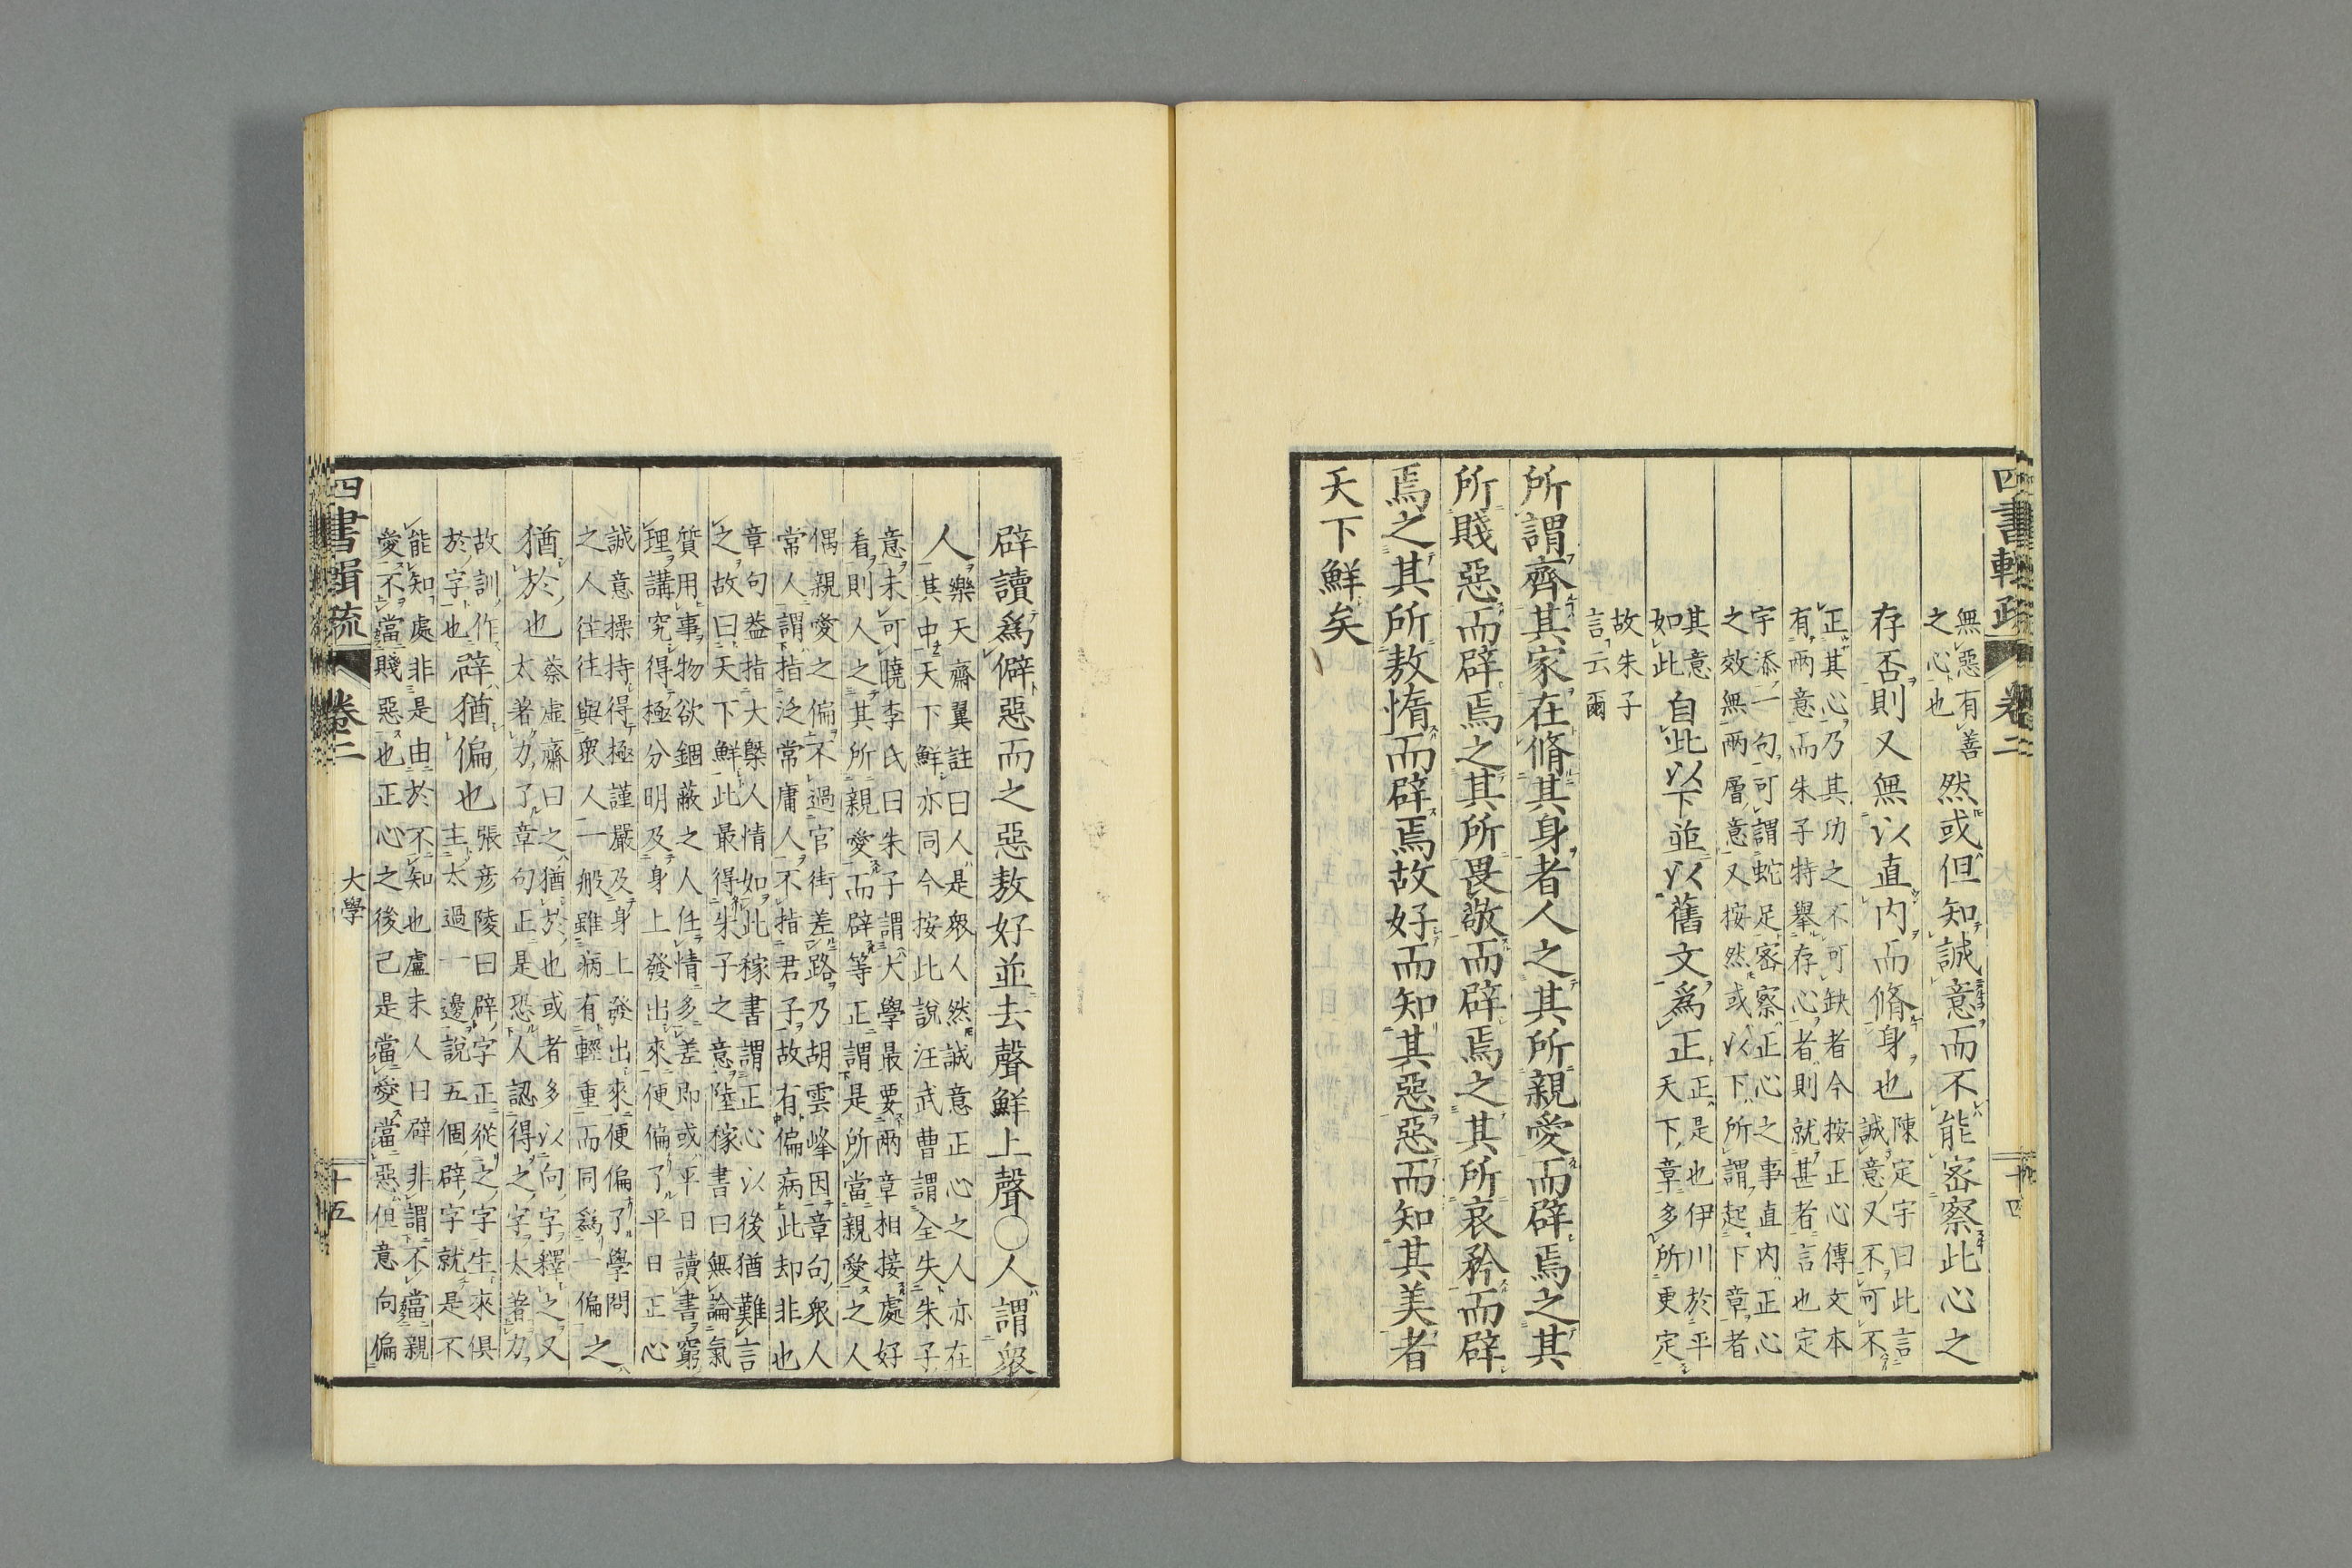 四書輯疏 卷二 十四
無惡有善
之心也
然或但知誠意而不能密察此心之
存否則又無以直内而脩身也
陳定宇曰此言
誠意又不可不
正其心乃其功之不可缺者今按正心傳文本
有兩意而朱子特舉存心者則就甚者言也定
宇添一句可謂蛇足密察正心之事直内正心
之效無兩層意又按然或以下所謂起下章者
其意
如此
自此以下並以舊文爲正
正是也伊川於平
天下章多所更定
故朱子
言云爾
所謂齊其家在脩其身者人之其所親愛而辟焉之其
所賤惡而辟焉之其所畏敬而辟焉之其所哀矜而辟
焉之其所敖惰而辟焉故好而知其惡惡而知其美者
天下鮮矣
辟讀爲僻惡而之惡敖好並去聲鮮上聲○人謂衆
人
樂天齋翼註曰人是衆人然誠意正心之人亦在
其中天下鮮亦同今按此說汪武曹謂全失朱子
意未可曉李氏曰朱子謂大學最要兩章相接處好
看則人之其所親愛而辟等正謂是所當親愛之人
偶親愛之偏不過官街差路乃胡雲峰因章句衆人
常人謂指泛常庸人不指君子故有偏病此却非也
章句蓋指大槩人情如此稼書謂正心以後猶難言
之故曰天下鮮此最得朱子之意陸稼書曰無論氣
質用事物欲錮蔽之人任情多差即或平日讀書窮
理講究得極分明及身上發出來便偏了平日正心
誠意操持得極謹嚴及身上發出來便偏了學問
之人徃往與衆人一般雖病有輕重而同爲一偏
之
猶於也
蔡虛齋曰之猶於也或者多以向字釋之又
太著力了章句正是恐人認得之字太著力
故訓作
於字也
辟猶偏也
張彦陵曰辟字正從之字生來俱
主太過一邊說五個辟字就是不
能知處非是由於不知也盧未人曰辟非謂不當親
愛不當賤惡也正心之後己是當愛當惡但意向偏
四書輯疏 卷二 大學 十五